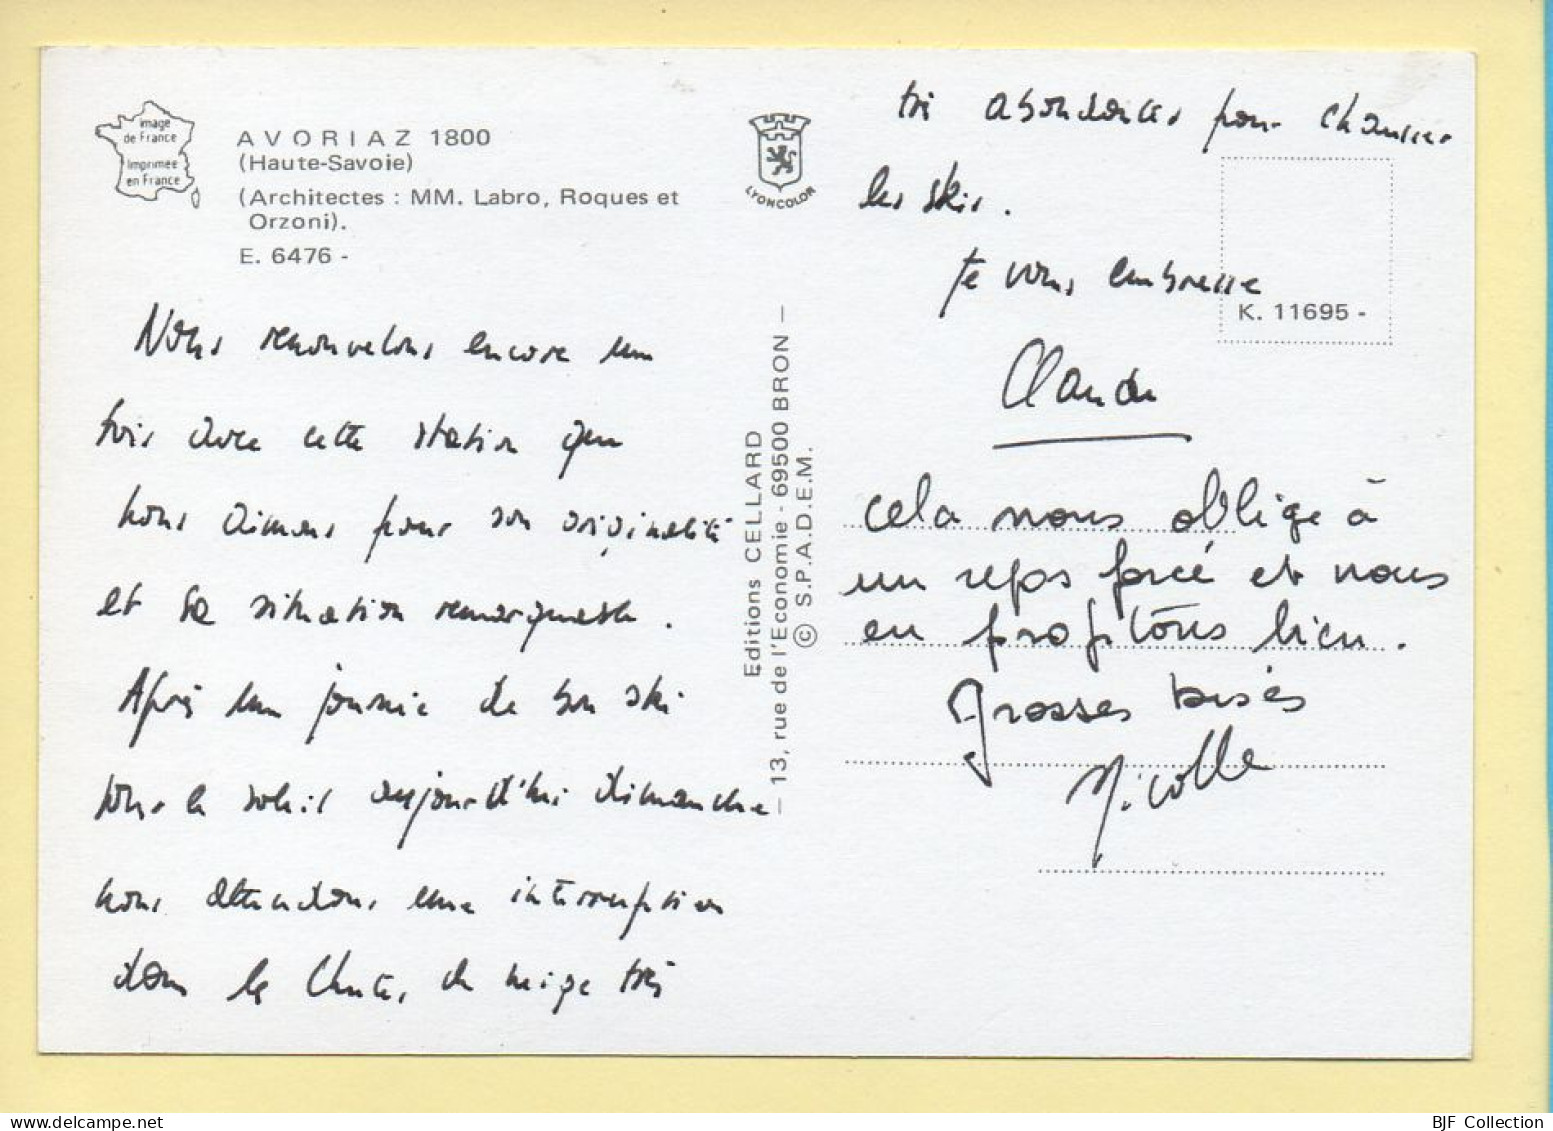 image
de France
Imprimée
en France
AVORIAZ 1800
(Haute-Savoie)
(Architectes : MM. Labro, Roques et
Orzoni).
E. 6476 -
LYONCOLOR
Nous renouvelons encore une
fois avec cette station que
nous aimons pour son originalité
et sa situation remarquable.
Après une journée de bon ski
sous le soleil aujourd'hui dimanche
nous attendons une interruption
dans les chutes de neige très
Editions CELLARD
— 13, rue de l'Economie - 69500 BRON —
© S.P.A.D.E.M.
très abondantes pour chausser
les skis.
Je vous embrasse
K. 11695 -
Claude
cela nous oblige à
un repos forcé et nous
en profitons bien.
Grosses bises
Nicolle
BJF Collection